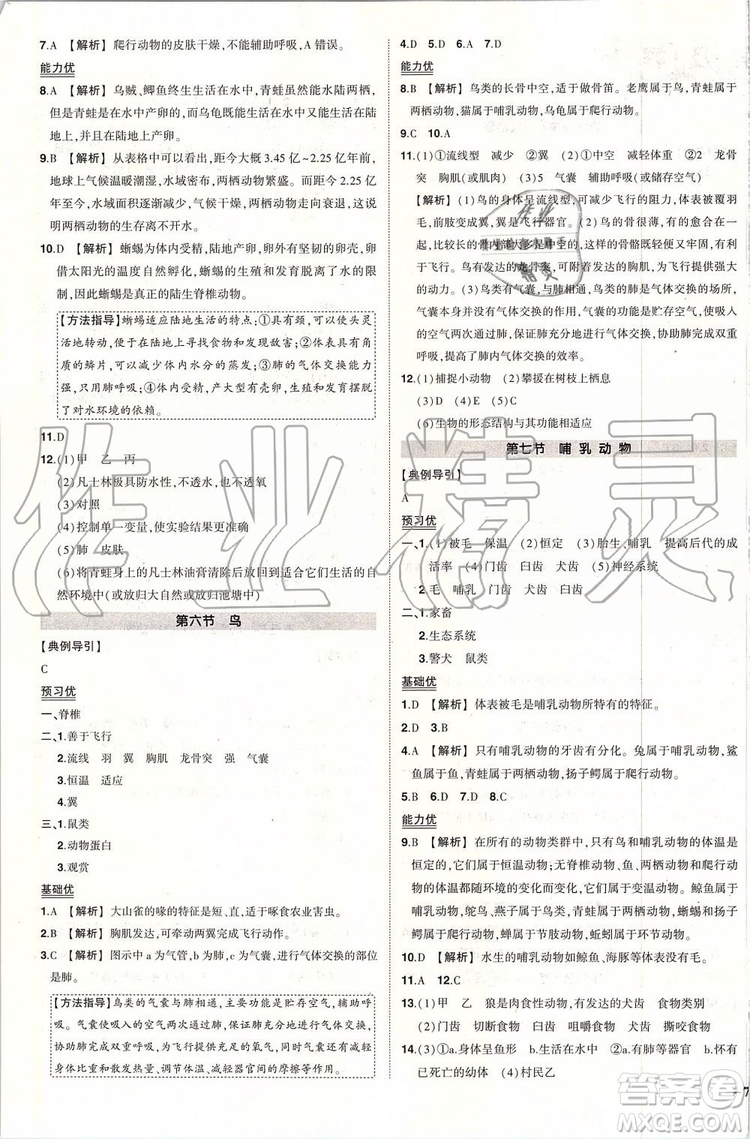 7.A 【解析】爬行动物的皮肤干燥,不能辅助呼吸,A错误。
能力优
8.A 【解析】乌贼、鲫鱼终生生活在水中,青蛙是水陆两栖,但是青蛙是在水中产卵的,而乌龟虽生活在水中,但在陆地上产卵,在陆地上发育。
9.B 【解析】从表格中可以看出,距今大约3.45亿~2.25亿年前,
地球上气候温暖潮湿,水域密布,两栖动物繁盛;距今2.25亿
年至今,水域面积逐渐减少,气候干燥,两栖动物衰退,由此
说明两栖动物的生存离不开水。
10.D 【解析】蜥蜴体内受精,陆地产卵,卵外有坚韧的卵壳。卵
借太阳光的温度自然孵化,蜥蜴的生殖和发育摆脱了对水环
境的限制,因此蜥蜴是真正的陆生脊椎动物。
【方法指导】蜥蜴适应陆地生活的特点:①具有颈,可以使头灵
活地转动,便于在陆地上寻找食物和发现敌害;②体表具有角
质的鳞片,可以减少体内水分的蒸发;③肺的气体交换能力
强,只用肺呼吸;④体内受精,产大型有壳卵,生殖摆脱了
对水环境的依赖。
11.D
12.(1)甲 乙 丙
(2)凡士林极具防水性,不透水,也不透气
(3)呼吸
(4)控制单一变量,使实验结果更准确
(5)肺 皮肤
(6)将青蛙身上的凡士林油膏清除后放回到它们生活的自
然环境中(或放归大自然或放归池塘中)
第六节 鸟
【典例导引】
C
预习优
一、脊椎
二、1.善于飞行
2.流线 羽 翼 胸肌 龙骨突 强 气囊
3.恒温 适应
4.翼
三、1.鼠类
2.动物蛋白
3.观赏
基础优
1.A 【解析】大山雀的喙的特征是短、直,适于啄食农业害虫。
2.A 【解析】胸肌发达,可牵动两翼完成飞行动作。
3.C 【解析】图示中a为气管,b为肺,c为气囊,进行气体交换的部位
是肺。
【方法指导】鸟类的气囊与肺相通,主要功能是贮存空气,辅助呼
吸。气囊使吸入的空气两次通过肺,保证肺充分地进行气体交换,
为飞行提供充足的氧气,同时气囊还有减轻身体比重、散发热量、
减轻器官间的摩擦等功能。
4.D 5.D 6.A 7.D
能力优
8.B 【解析】鸟类的长骨中空,适于做骨笛。老鹰属于鸟,青蛙属于
两栖动物,猫属于哺乳动物,乌龟属于爬行动物。
9.C 10.A
11.(1)①流线型 减少 ②翼 (2)①中空 减轻体重 ②龙骨
突 胸肌(或肌肉) (3)5 气囊 辅助呼吸(或储存空气)
【解析】(1)鸟的身体呈流线型,可减少飞行的阻力,体表被覆羽
毛,前肢变成翼,翼是飞行器官。(2)鸟的骨有的很薄,有的
比较长的骨大都是中空的,鸟类的骨骼既轻便又牢固,有
利于飞行。鸟有发达的龙骨突,可附着发达的胸肌,提供强大的
动力。(3)鸟类有气囊,气囊与肺相通,鸟体内有许多气囊,
气囊本身并没有气体交换的作用,气囊的功能是贮存空气,使吸
入的空气两次通过肺,保证肺充分地进行气体交换,协助肺完成双
重呼吸,提高了肺内气体交换的效率。
12.(1)捕捉小动物 (2)攀援在树枝上栖息
(3)D (4)E (5)C
(6)生物的形态结构与其功能相适应
第七节 哺乳动物
【典例导引】
A
预习优
一、1.(1)被毛 保温 (2)恒定 (3)胎生 哺乳 提高后代的成
活率 (4)门齿 臼齿 犬齿 (5)神经系统
2.毛 哺乳 门齿 犬齿 臼齿
二、1.家畜
2.生态系统
3.警犬 鼠类
基础优
1.D 【解析】体表被毛是哺乳动物所特有的特征。
2.D 3.B
4.A 【解析】只有哺乳动物的牙齿有分化。兔属于哺乳动物,鲨
鱼属于鱼,青蛙属于两栖动物,扬子鳄属于爬行动物。
5.B 6.D 7.D 8.C
能力优
9.B 【解析】在所有的动物类群中,只有鸟和哺乳动物的体温是
恒定的,它们属于恒温动物;无脊椎动物、鱼、两栖动物和爬行
动物的体温都随环境的变化而变化,属于变温动物。鲸鱼属于
哺乳动物,鸵鸟、燕子属于鸟类,青蛙属于两栖动物,蜥蜴和扬子
鳄属于爬行动物,蝉属于节肢动物,蚯蚓属于环节动物。
10.D 【解析】水生的哺乳动物如鲸鱼、海豚等体表无毛。
11.A 12.C
13.(1)甲 乙 狼是肉食性动物,有发达的犬齿 食物类别
(2)门齿 切断食物 臼齿 磨碎食物 犬齿 撕咬食物
14.(3)①a.身体呈鱼形 b.生活在水中 ②a.用肺呼吸 b.怀有
已死亡的幼体 (4)村民乙
作业精灵
答案圈
MXQE.COM